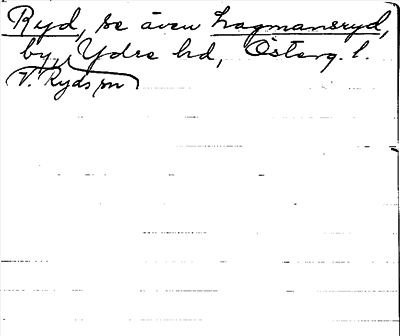 Ryd, se även Lagmansryd,
by, Ydre hd, Österg. l.
V. Ryds sn